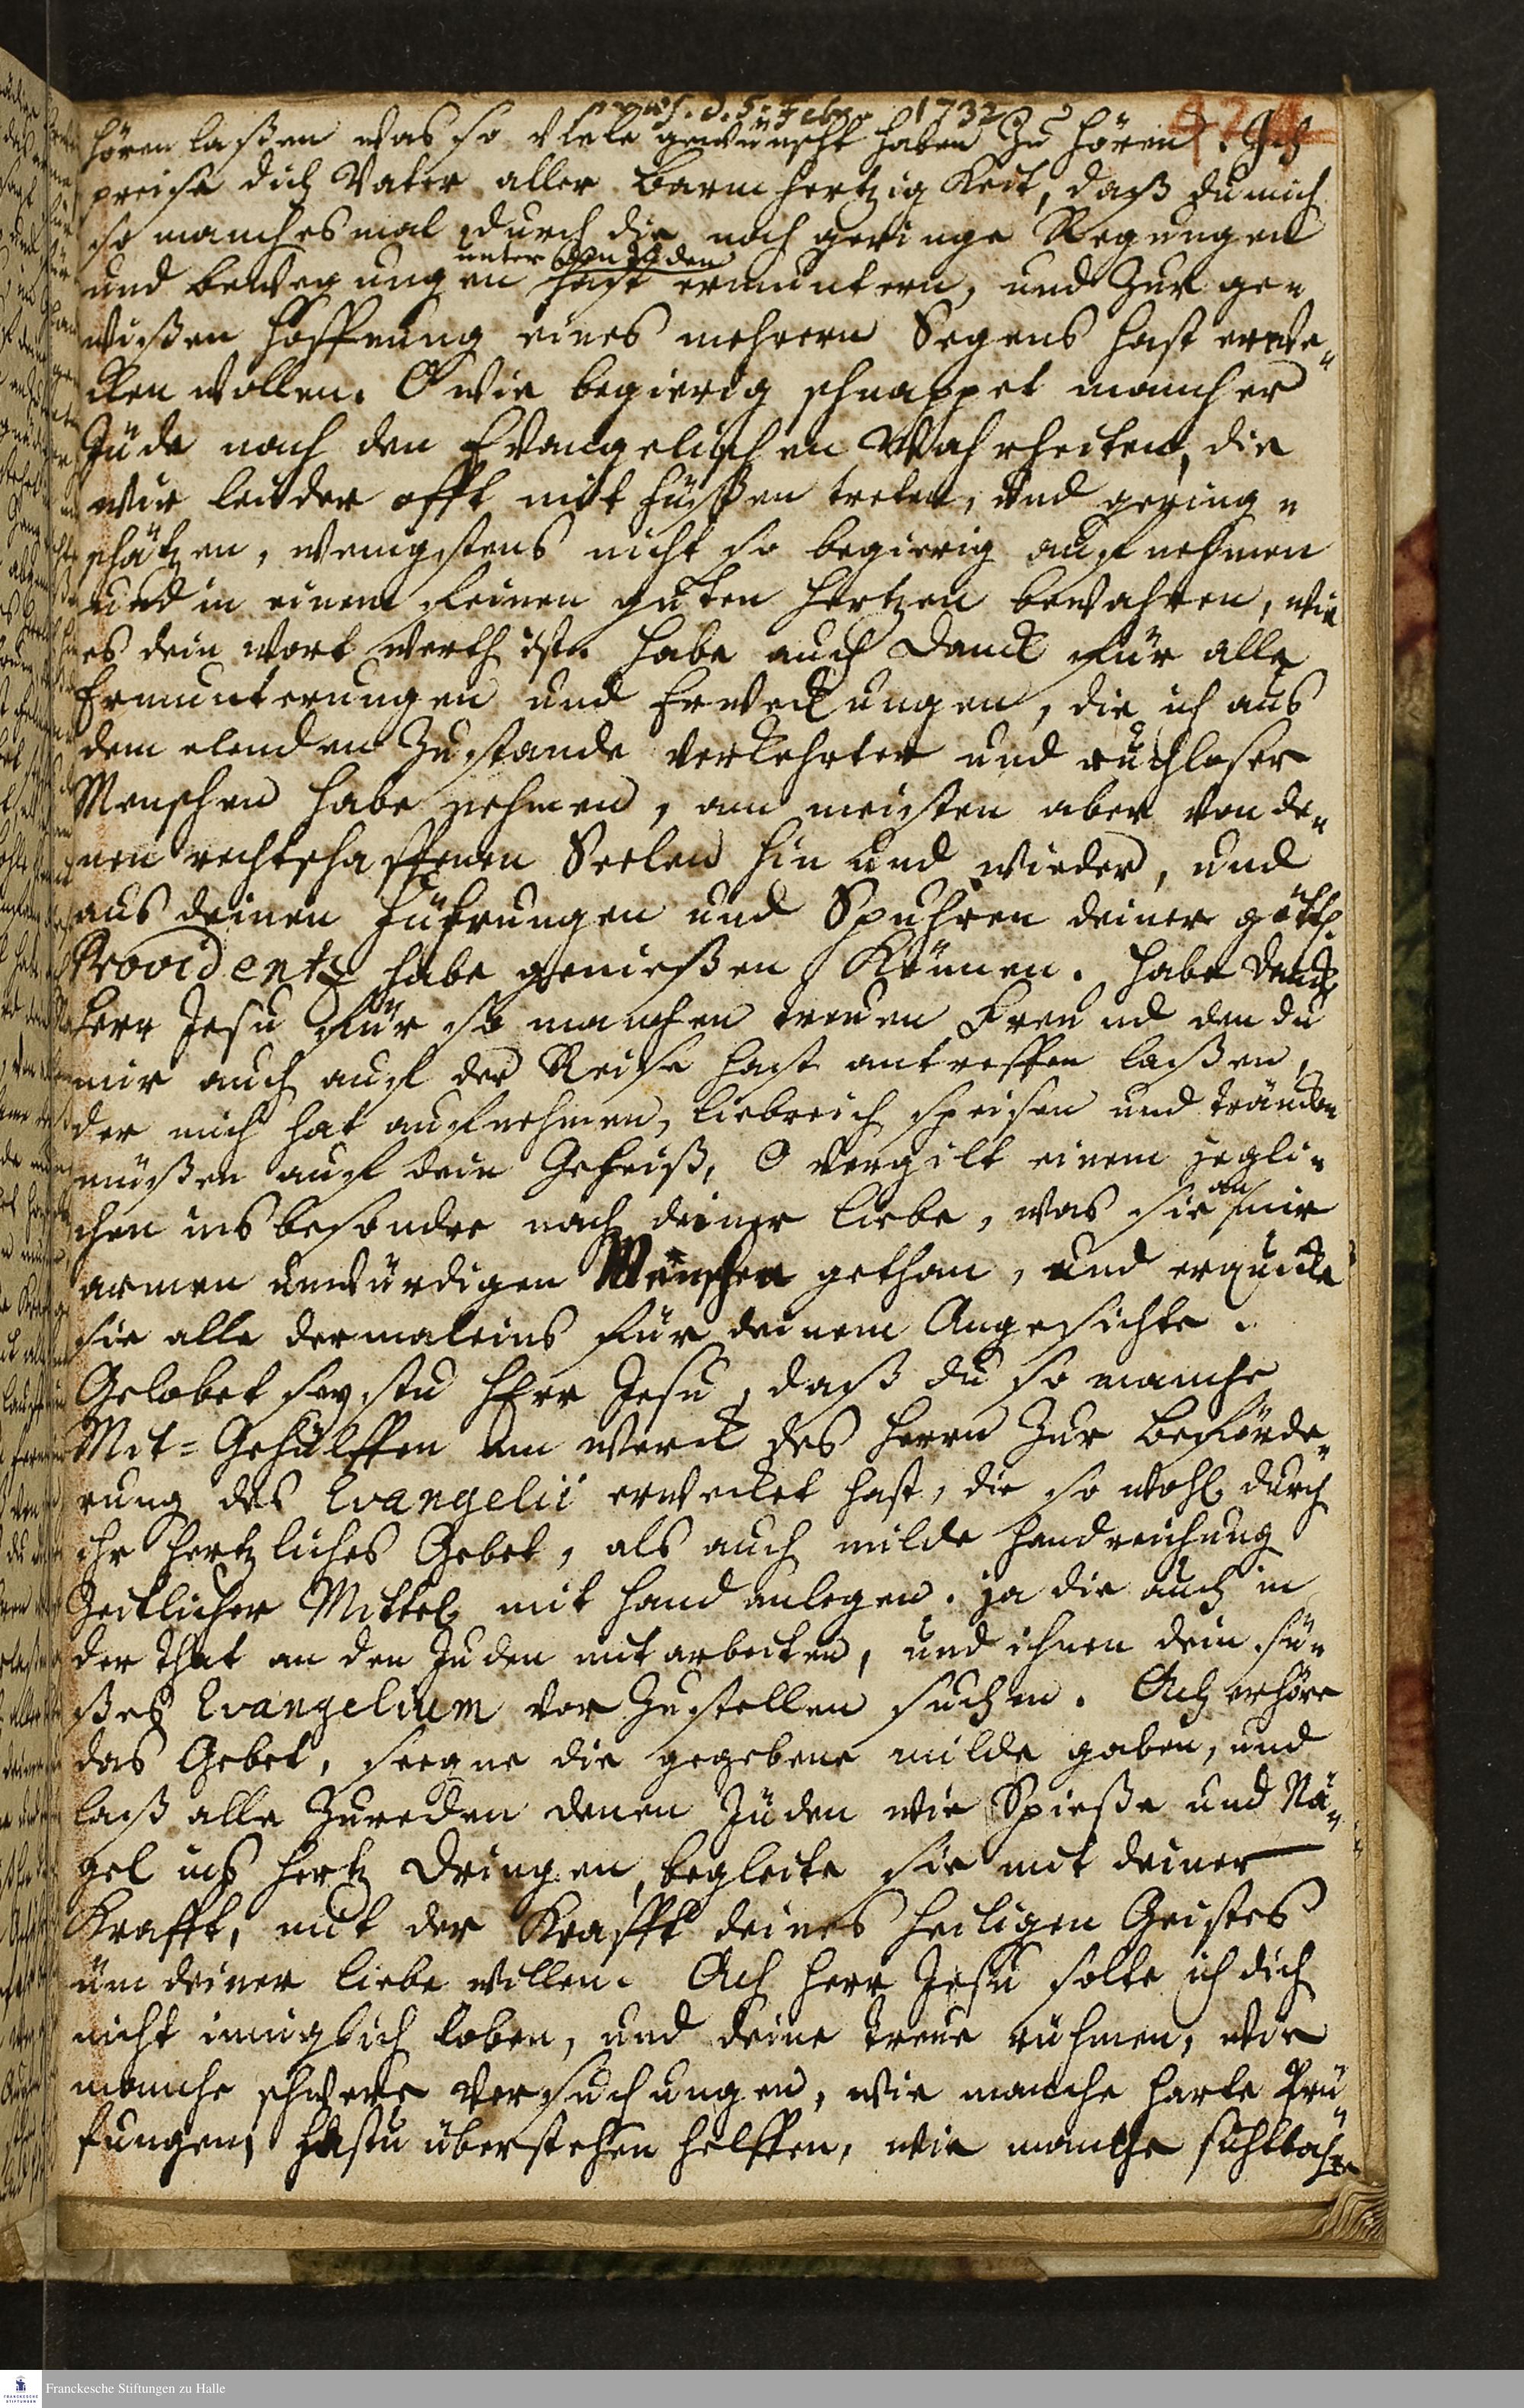 d. 5. Febr. 1732.
hören laßen was so viele gewünscht haben zu hören. Ich
preise dich Vater aller Barmhertzigkeit, daß du mich
so manchesmal durch die noch geringe Regungen
unter den Juden
und bewegungen hast ermuntern, und zur ge„
wißen Hoffnung eines mehrern Segens hast erwe„
cken wollen. O wie begierig schnappet mancher
Jude nach den Evangelischen Wahrheiten, die
wir leider offt mit füßen treten, und gering„
schätzen, wenigstens nicht so begierig aufnehmen
und in einem feinen guten Hertzen bewahren, wie
es dein Wort werth ist. Habe auch Danck für alle
Ermunterungen und Erweckungen, die ich aus
dem elenden Zustande verkehrter und ruchloser
Menschen habe nehmen, am meisten aber von de„
nen rechtschaffenen Seelen hin und wieder, und
aus deinen Führungen und Spuhren deiner göttl.
Providentz habe genießen können. Habe Danck
Herr Jesu für so manchen treuen Freund den du
mir auch auf der Reise hast antreffen laßen,
der mich hat aufnehmen, liebreich speisen und träncken
müßen auf dein Geheiß, O vergilt einem jegli„
chen insbesondre nach deiner Liebe, was sie an mir
armen unwürdigen Menschen gethan, und erquicke
sie alle dermaleins für deinem Angesichte.
Gelobet seystu HErr Jesu, daß du so manche
Mit=Gehülffen am Werck des Herrn zur Beförde„
rung des Evangelii erwecket hast, die so wohl durch
ihr hertzliches Gebet, als auch milde Handreichung
zeitlicher Mittel mit Hand anlegen. ja die auch in
der That an den Juden mit arbeiten, und ihnen dein sü„
ßes Evangelium vor zustellen suchen. Ach erhöre
das Gebet, seegne die gegebene milde gaben, und
laß alle Zureden denen Juden wie Spieße und Nä„
gel ins Hertz dringen, begleite sie mit deiner
Krafft, mit der Krafft deines heiligen Geistes
um deiner Liebe willen. Ach Herr Jesu solte ich dich
nicht inniglich loben, und deine treue rühmen, wie
manche schwere Versuchungen, wie manche harte Prü„
fungen, hastu überstehen helffen, wie manche
Franckesche Stiftungen zu Halle